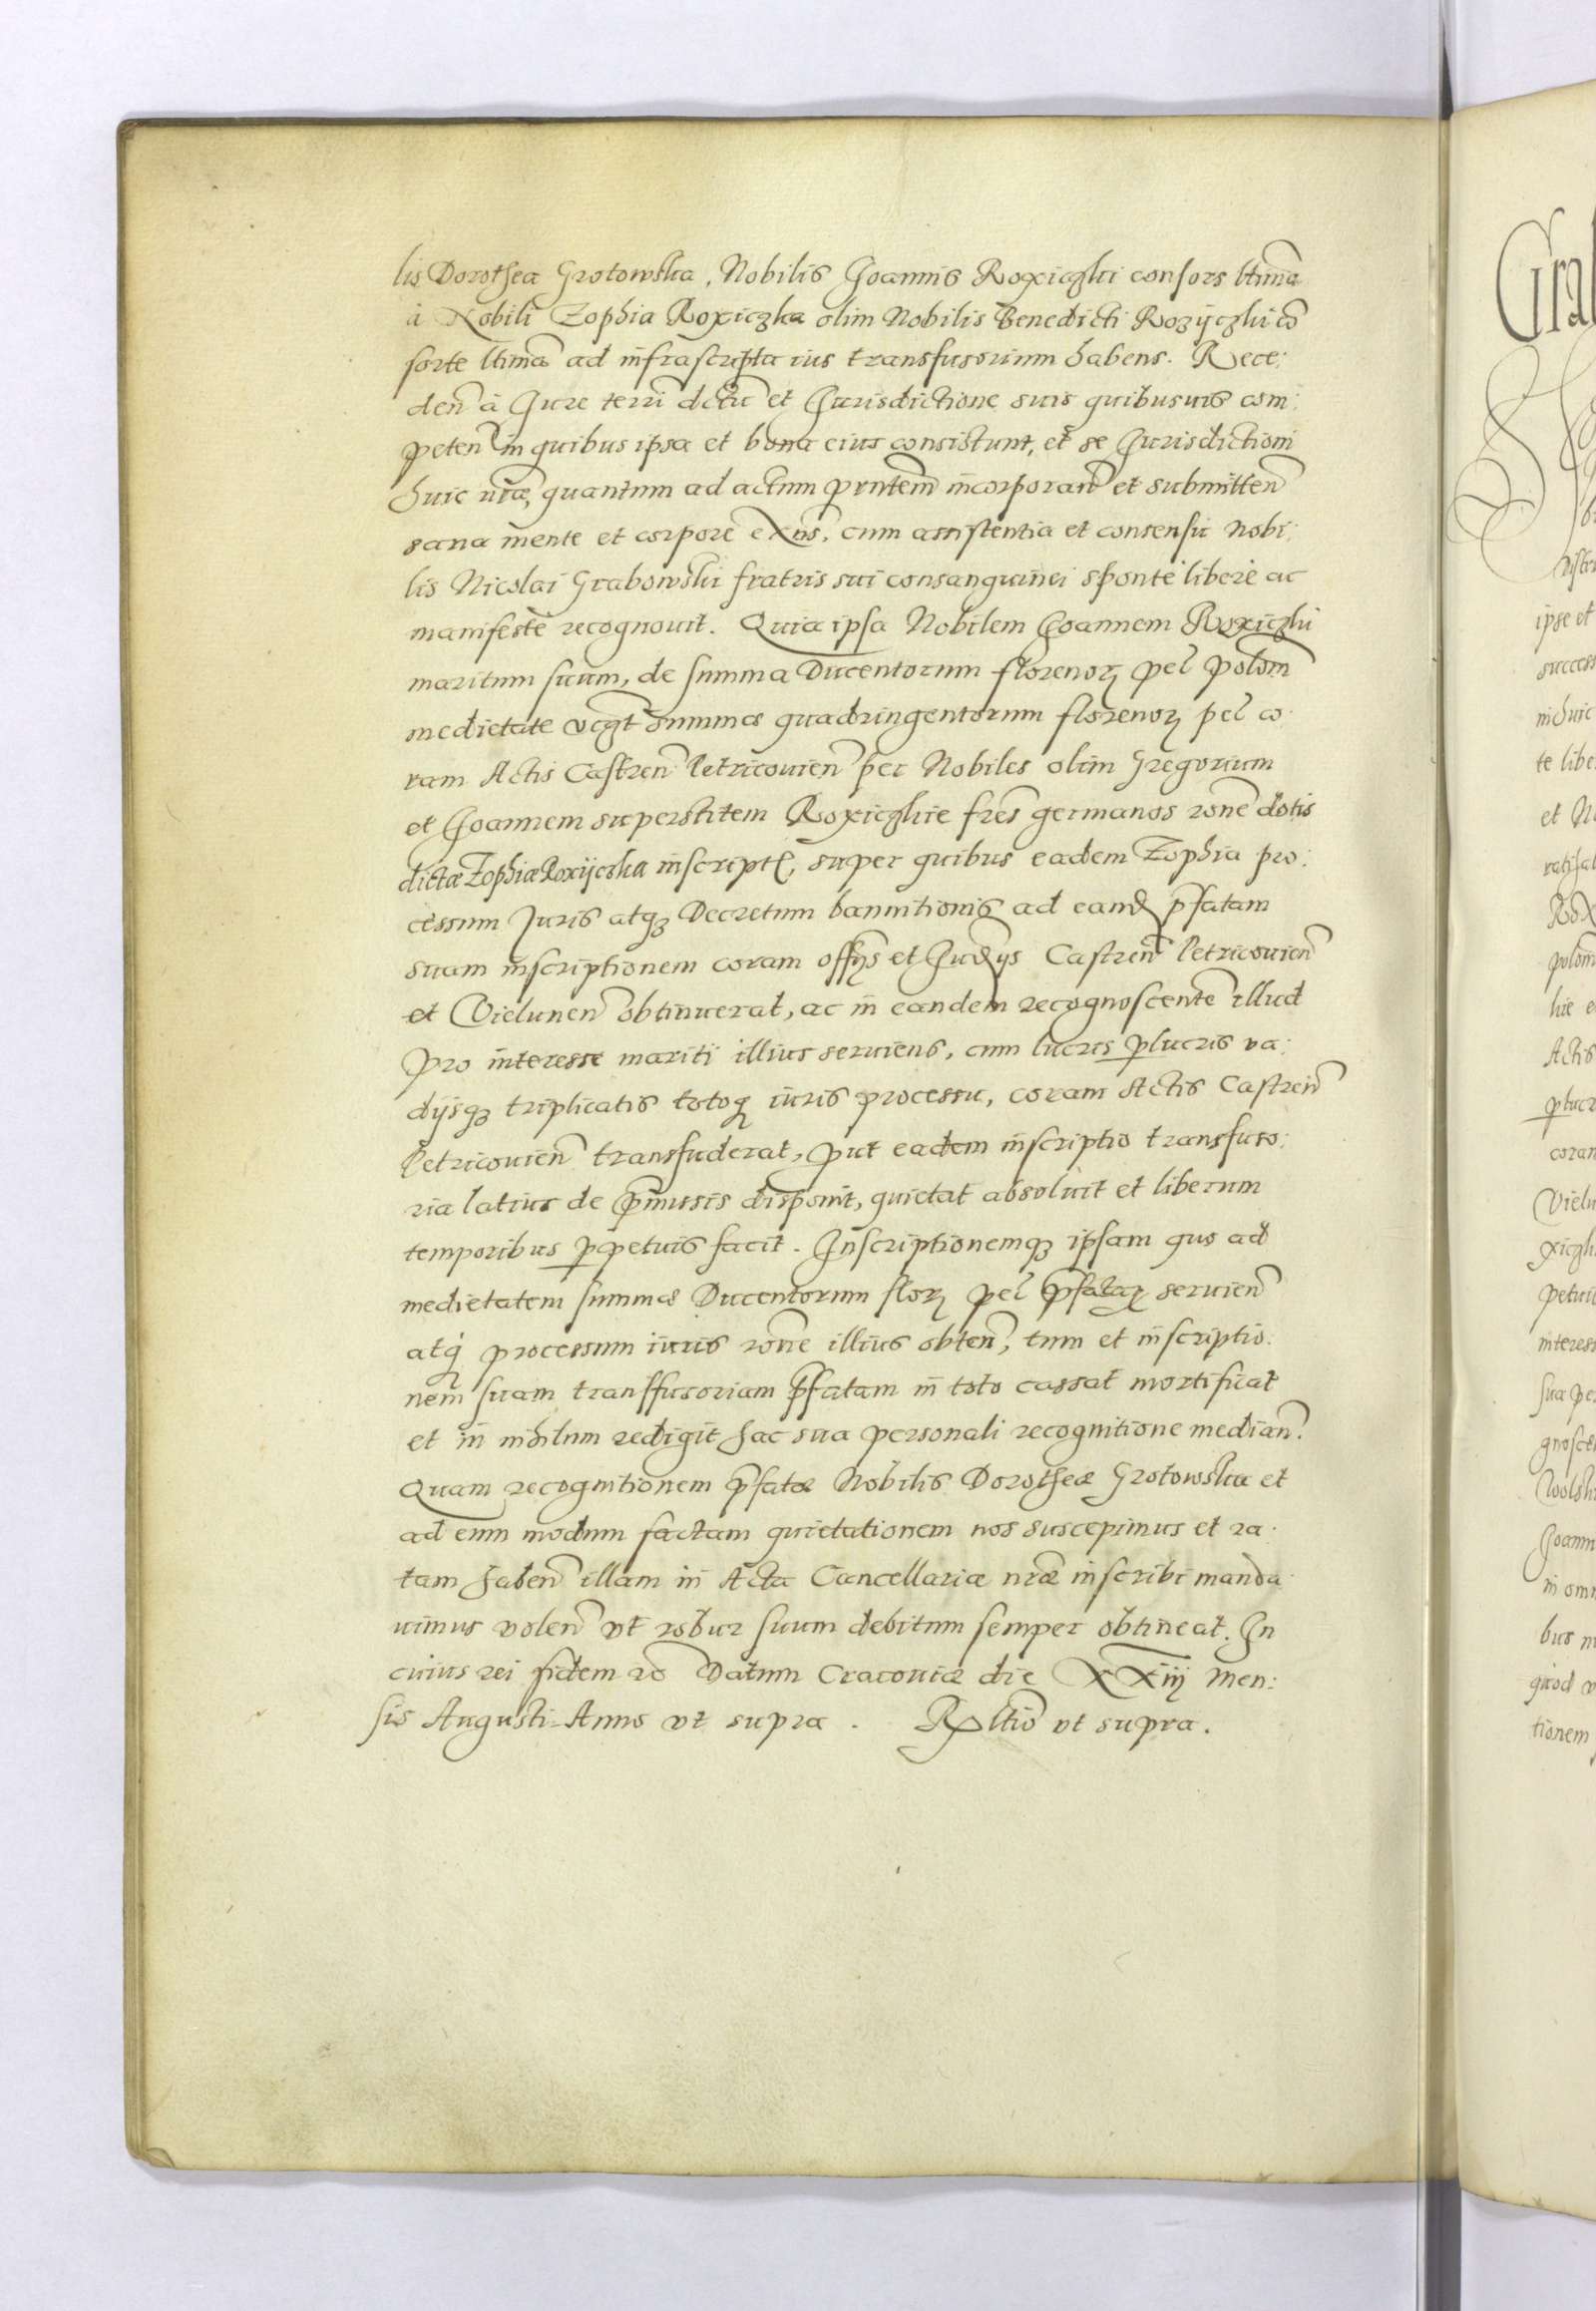 lis Dorothea Grotowska, Nobilis Joannis Roxiczki consors ltima
à Nobili Zophia Roxiczka olim Nobilis Benedicti Rozijczki cō
sorte ltima ad infrascripta ius transfusorium habens. Rece:
den à Jure terri dctu et Jurisdictione suis quibusuis com:
peten in quibus ipsa et bona eius consistunt, et se Jurisdictioni
huic nrae, quantum ad actum prntem incorporan et submitten
sana mente et corpore exns, cum assistentia et consensu Nobi:
lis Nicolai Grabowski fratris sui consanguinei sponte libere ac
manifeste recognouit. Quia ipsa Nobilem Joannem Roxiczki
maritum suum, de summa Ducentorum florenor pcl polom
medietate vcgt summae quadringentorum florenor pcl co:
ram Actis Castren Petricouien per Nobiles olim Gregorium
et Joannem superstitem Roxiczkie fres germanos rone dotis
dictae Zophiae Roxijczka inscript, super quibus eadem Zophia pro:
cessum Juris atq3 Decretum bannitionis ad eand pfatam
suam inscriptionem coram offijs et Judijs Castren Petricouien
et Vielunen obtinuerat, ac in eandem recognoscente illud
pro interesse mariti illius seruiens, cum lucris plucris va:
dijsq3 triplicatis totoq iuris processu, coram Actis Castren
Petricouien transfuderat, put eadem inscriptio transfuso:
ria latius de pmissis disponit, quietat absoluit et liberum
temporibus ppetuis facit. Inscriptionemq3 ipsam quo ad
medietatem summae Ducentorum flor pcl pfatar seruien
atq processum iuris rone illius obten, tum et inscriptio:
nem suam transfusoriam pfatam in toto cassat mortificat
et in nihilum redigit hac sua personali recognitione median.
Quam recognitionem pfatae Nobilis Dorotheae Grotowska et
ad eum modum factam quietationem nos suscepimus et ra:
tam haben illam in Acta Cancellariae nrae inscribi manda:
uimus volen vt robur suum debitum semper obtineat. In
cuius rei fidem rc Datum Cracouiae die XXiij Men:
sis Augusti Anno vt supra. Rltio vt supra.